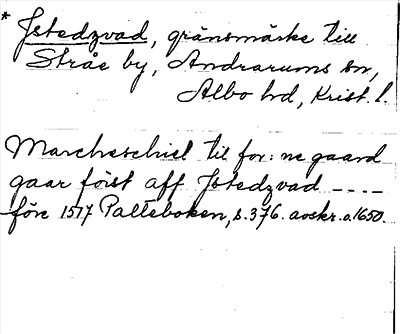 * Jstedzvad, gränsmärke till
Stråe by, Andrarums sn,
Albo hd, Krist. l.
Marcheschiel til for: ne gaard
gaar först aff Jstedzvad ----
före 1517 Palteboken, s. 376. avskr. o. 1650.